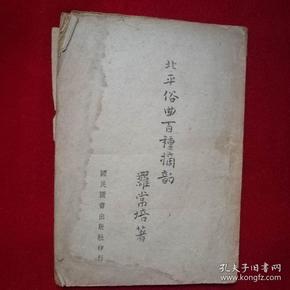 北平俗曲百種摘韵
羅常培著
國民圖書出版社印行
孔夫子旧书网